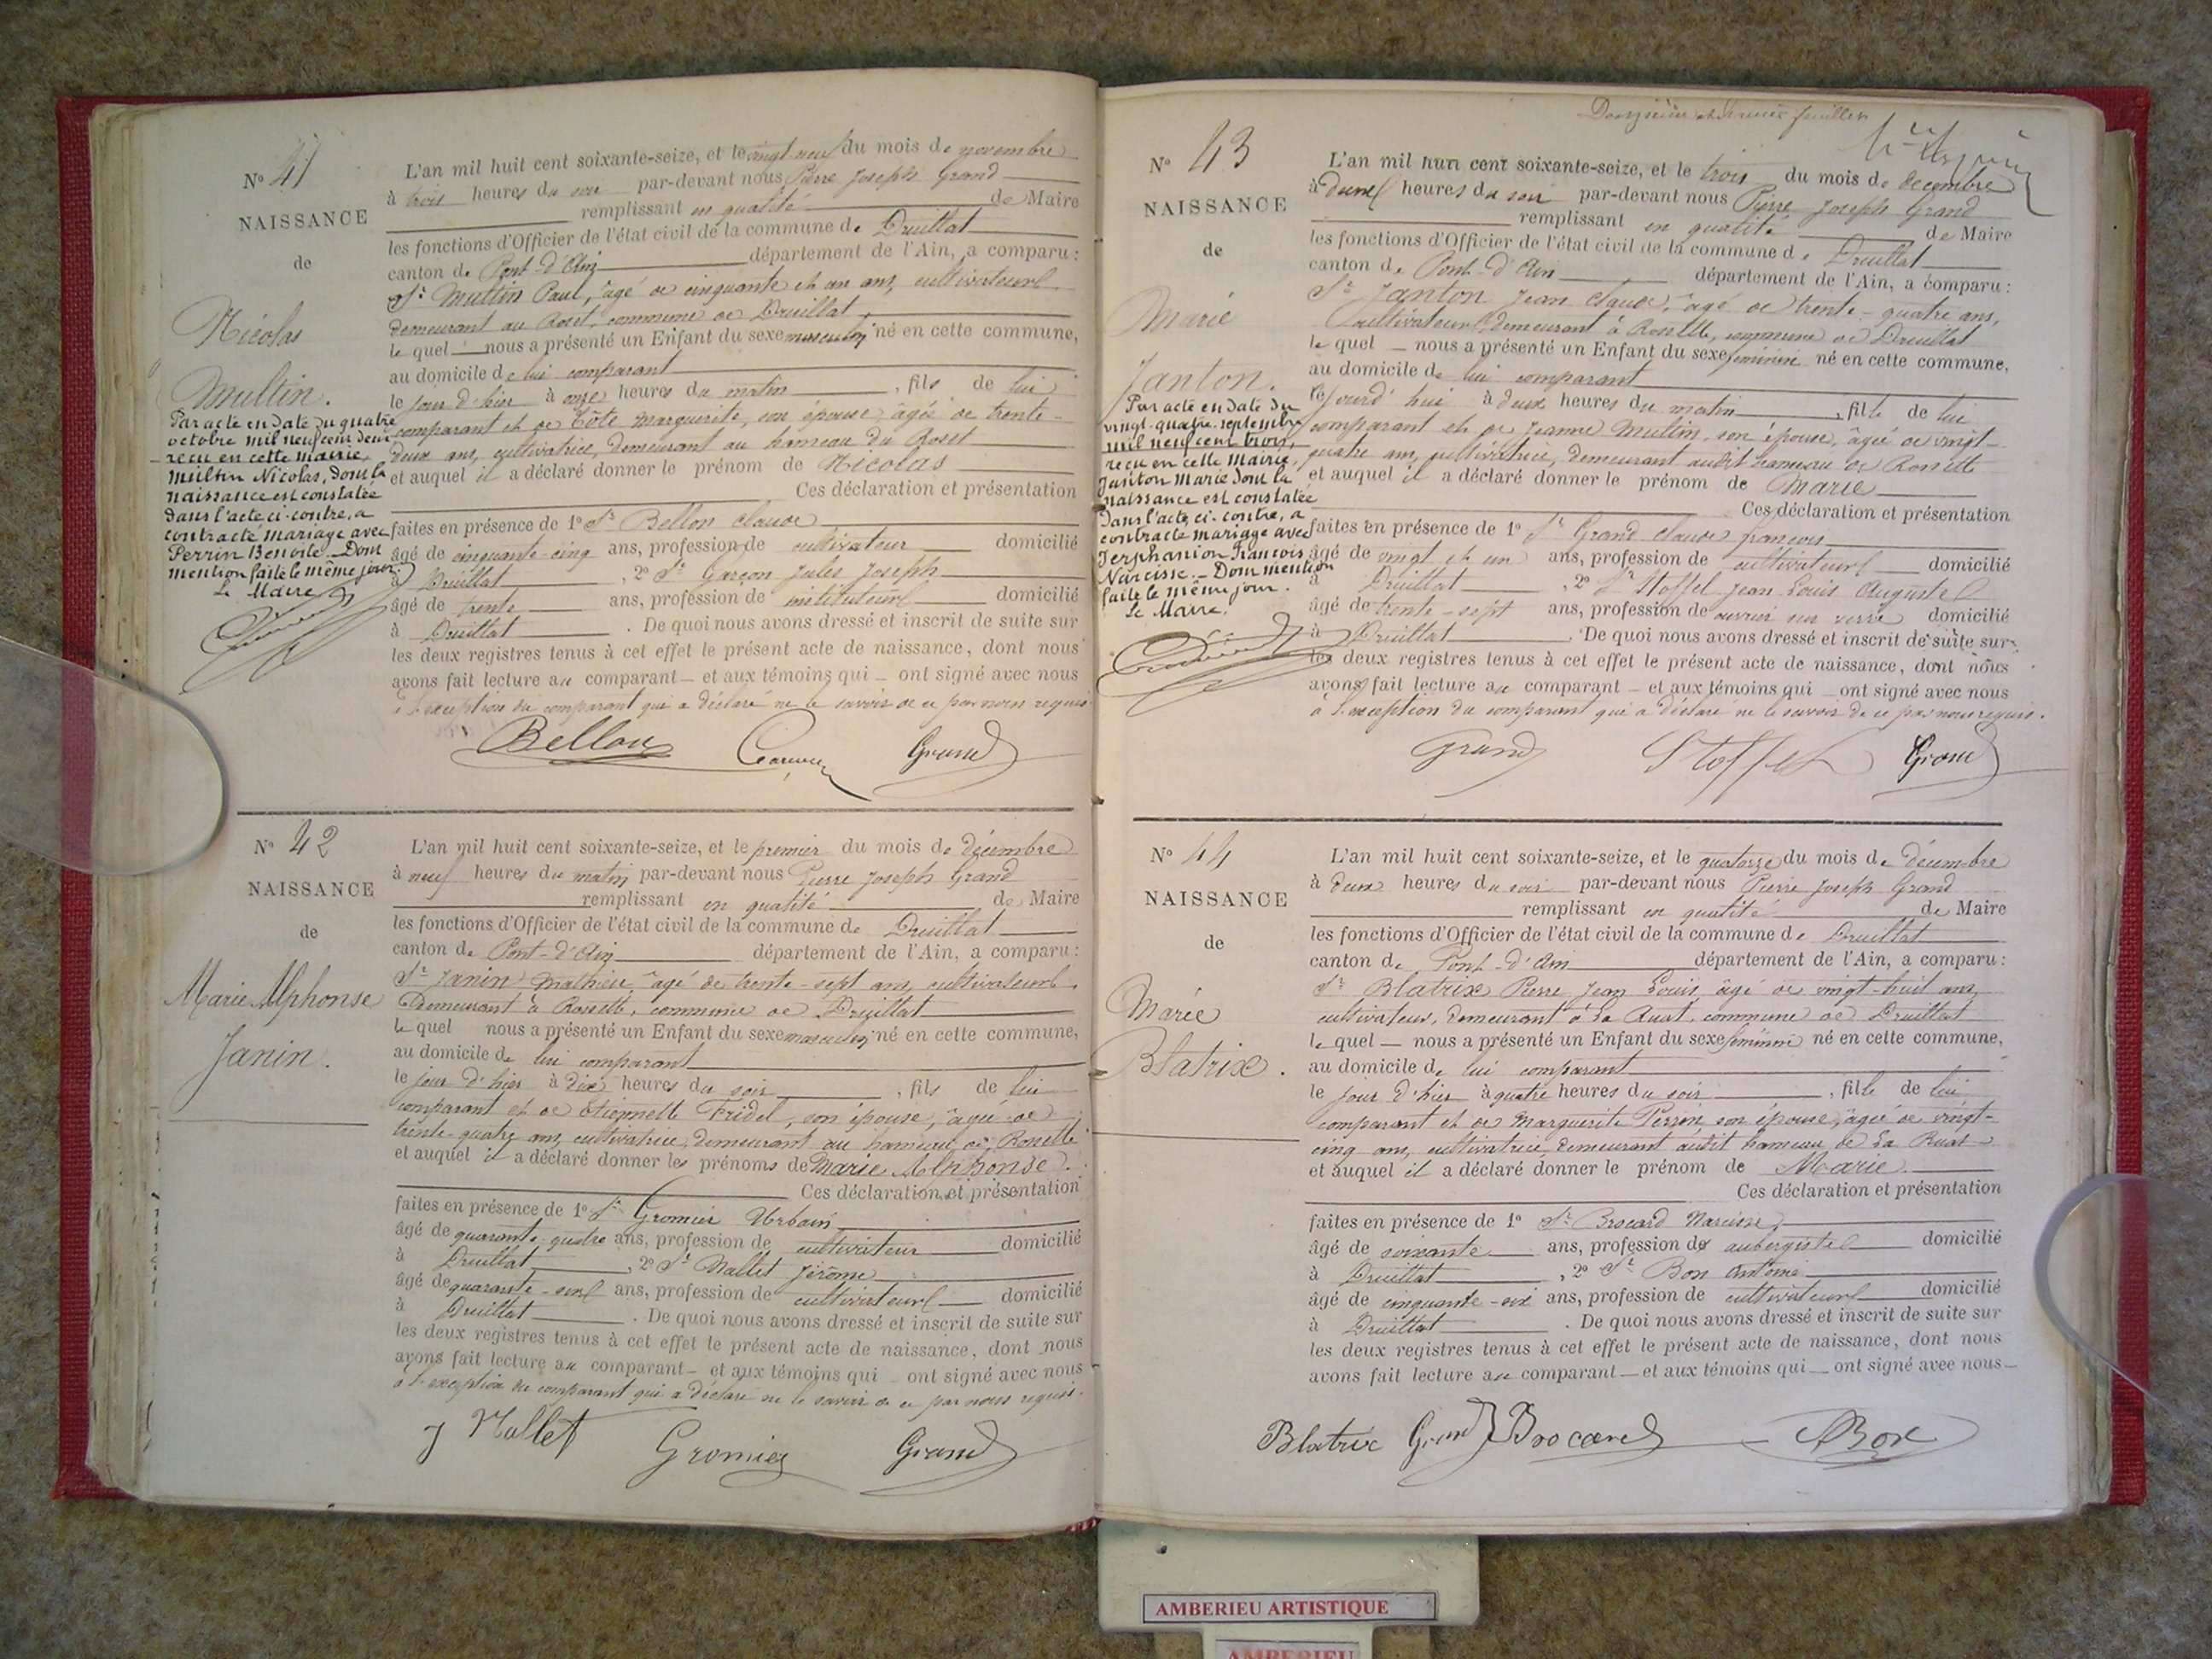 N° 41
NAISSANCE
de
Nicolas
Multin.
Par acte en date du quatre
octobre mil neuf cent deux
reçu en cette mairie,
Multin Nicolas, dont la
naissance est constatée
dans l'acte ci-contre, a
contracté mariage avec
Perrin Benoite. Dont
mention faite le même jour.
Le Maire
L'an mil huit cent soixante-seize, et le vingt-neuf du mois de novembre
à trois heures du soir par-devant nous Pierre Joseph Grand
remplissant en qualité de Maire
les fonctions d'Officier de l'état civil de la commune de Druillat
canton de Pont-d'Ain département de l'Ain, a comparu :
Sr Multin Paul, âgé de cinquante et un ans, cultivateur
demeurant au Roset, commune de Druillat
le quel nous a présenté un Enfant du sexe masculin né en cette commune,
au domicile de lui comparant
le jour d'hier à onze heures du matin , fils de lui
comparant et de Tête Marguerite, son épouse âgée de trente-
deux ans, cultivatrice, demeurant au hameau du Roset
et auquel il a déclaré donner le prénom de Nicolas
Ces déclaration et présentation
faites en présence de 1° Sr Bellon Claude
âgé de cinquante-cinq ans, profession de cultivateur domicilié
à Druillat , 2° Sr Garçon Jules Joseph
âgé de trente ans, profession de instituteur domicilié
à Druillat . De quoi nous avons dressé et inscrit de suite sur
les deux registres tenus à cet effet le présent acte de naissance, dont nous
avons fait lecture au comparant et aux témoins qui ont signé avec nous
à l'exception du comparant qui a déclaré ne le savoir de ce par nous requis
Bellon Grand
N° 42
NAISSANCE
de
Marie Alphonse
Janin.
L'an mil huit cent soixante-seize, et le premier du mois de décembre
à neuf heures du matin par-devant nous Pierre Joseph Grand
remplissant en qualité de Maire
les fonctions d'Officier de l'état civil de la commune de Druillat
canton de Pont-d'Ain département de l'Ain, a comparu :
Sr Janin Mathieu, âgé de trente-sept ans, cultivateur
Demeurant à Rosette, commune de Druillat
le quel nous a présenté un Enfant du sexe masculin né en cette commune,
au domicile de lui comparant
le jour d'hier à dix heures du soir , fils de lui
comparant et de Etiennette Fridel, son épouse, âgée de
trente-quatre ans, cultivatrice, demeurant au hameau de Rosette
et auquel il a déclaré donner les prénoms de Marie Alphonse.
Ces déclaration et présentation
faites en présence de 1° Sr Gromier Urbain
âgé de quarante-quatre ans, profession de cultivateur domicilié
à Druillat , 2° Sr Mallet Jérôme
âgé de ans, profession de cultivateur domicilié
à Druillat . De quoi nous avons dressé et inscrit de suite sur
les deux registres tenus à cet effet le présent acte de naissance, dont nous
avons fait lecture au comparant et aux témoins qui ont signé avec nous
à l'exception du comparant qui a déclaré ne le savoir de ce par nous requis.
J Mallet Gromier Grand
Douzième et dernier feuillet
N° 43
NAISSANCE
de
Marie
Janton.
Par acte en date du
vingt-quatre septembre
mil neuf cent trois,
reçu en cette Mairie,
Janton Marie dont la
naissance est constatée
dans l'acte ci-contre, a
contracté mariage avec
Terphanion François
Narcisse. Dont mention
faite le même jour.
Le Maire.
L'an mil huit cent soixante-seize, et le trois du mois de décembre
à deux heures du soir par-devant nous Pierre Joseph Grand
remplissant en qualité de Maire
les fonctions d'Officier de l'état civil de la commune de Druillat
canton de Pont-d'Ain département de l'Ain, a comparu :
Sr Janton Jean Claude, âgé de trente-quatre ans,
Cultivateur demeurant à Rosette, commune de Druillat
le quel nous a présenté un Enfant du sexe féminin né en cette commune,
au domicile de lui comparant
cejourd'hui à deux heures du matin , fille de lui
comparant et de Jeanne Multin, son épouse, âgée de vingt-
quatre ans, cultivatrice, demeurant audit hameau de Rosette
et auquel il a déclaré donner le prénom de Marie
Ces déclaration et présentation
faites en présence de 1° Sr Grand Claude François
âgé de vingt et un ans, profession de cultivateur domicilié
à Druillat , 2° Sr Stoffel Jean Louis Auguste
âgé de trente-sept ans, profession de ouvrier sur verre domicilié
à Druillat . De quoi nous avons dressé et inscrit de suite sur
les deux registres tenus à cet effet le présent acte de naissance, dont nous
avons fait lecture au comparant et aux témoins qui ont signé avec nous
à l'exception du comparant qui a déclaré ne le savoir de ce par nous requis.
Grand Stoffel Grand
N° 44
NAISSANCE
de
Marie
Blatrix.
L'an mil huit cent soixante-seize, et le quatorze du mois de décembre
à deux heures du soir par-devant nous Pierre Joseph Grand
remplissant en qualité de Maire
les fonctions d'Officier de l'état civil de la commune de Druillat
canton de Pont-d'Ain département de l'Ain, a comparu :
Sr Blatrix Pierre Jean Louis, âgé de vingt-huit ans,
cultivateur, demeurant à La Ruat, commune de Druillat
le quel nous a présenté un Enfant du sexe féminin né en cette commune,
au domicile de lui comparant
le jour d'hier à quatre heures du soir , fille de lui
comparant et de Marguerite Perrin, son épouse, âgée de vingt-
cinq ans, cultivatrice, demeurant audit hameau de La Ruat
et auquel il a déclaré donner le prénom de Marie.
Ces déclaration et présentation
faites en présence de 1° Sr Brocard Narcisse,
âgé de soixante ans, profession de aubergiste domicilié
à Druillat , 2° Sr Bon Antoine
âgé de cinquante-six ans, profession de cultivateur domicilié
à Druillat . De quoi nous avons dressé et inscrit de suite sur
les deux registres tenus à cet effet le présent acte de naissance, dont nous
avons fait lecture au comparant et aux témoins qui ont signé avec nous
Blatrix Grand Brocard Bon
AMBERIEU ARTISTIQUE
AMBERIEU